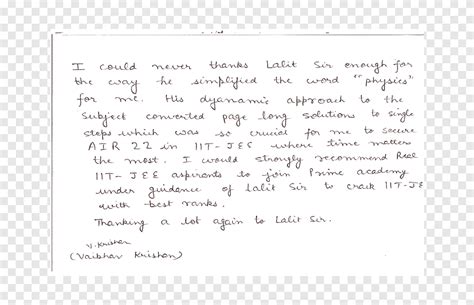 I could never thanks Lalit Sir enough for
the way he simplified the word "physics"
for me. His dyanamic approach to the
subject converted page long solutions to single
steps which was so crucial for me to secure
AIR 22 in IIT-JEE where time matter
the most. I would strongly recommend Real
IIT-JEE aspirants to join Prime academy
under guidance of Lalit Sir to crack IIT-JEE
with best ranks.
Thanking a lot again to Lalit Sir.
V. Krishon
(Vaibhav Krishon)